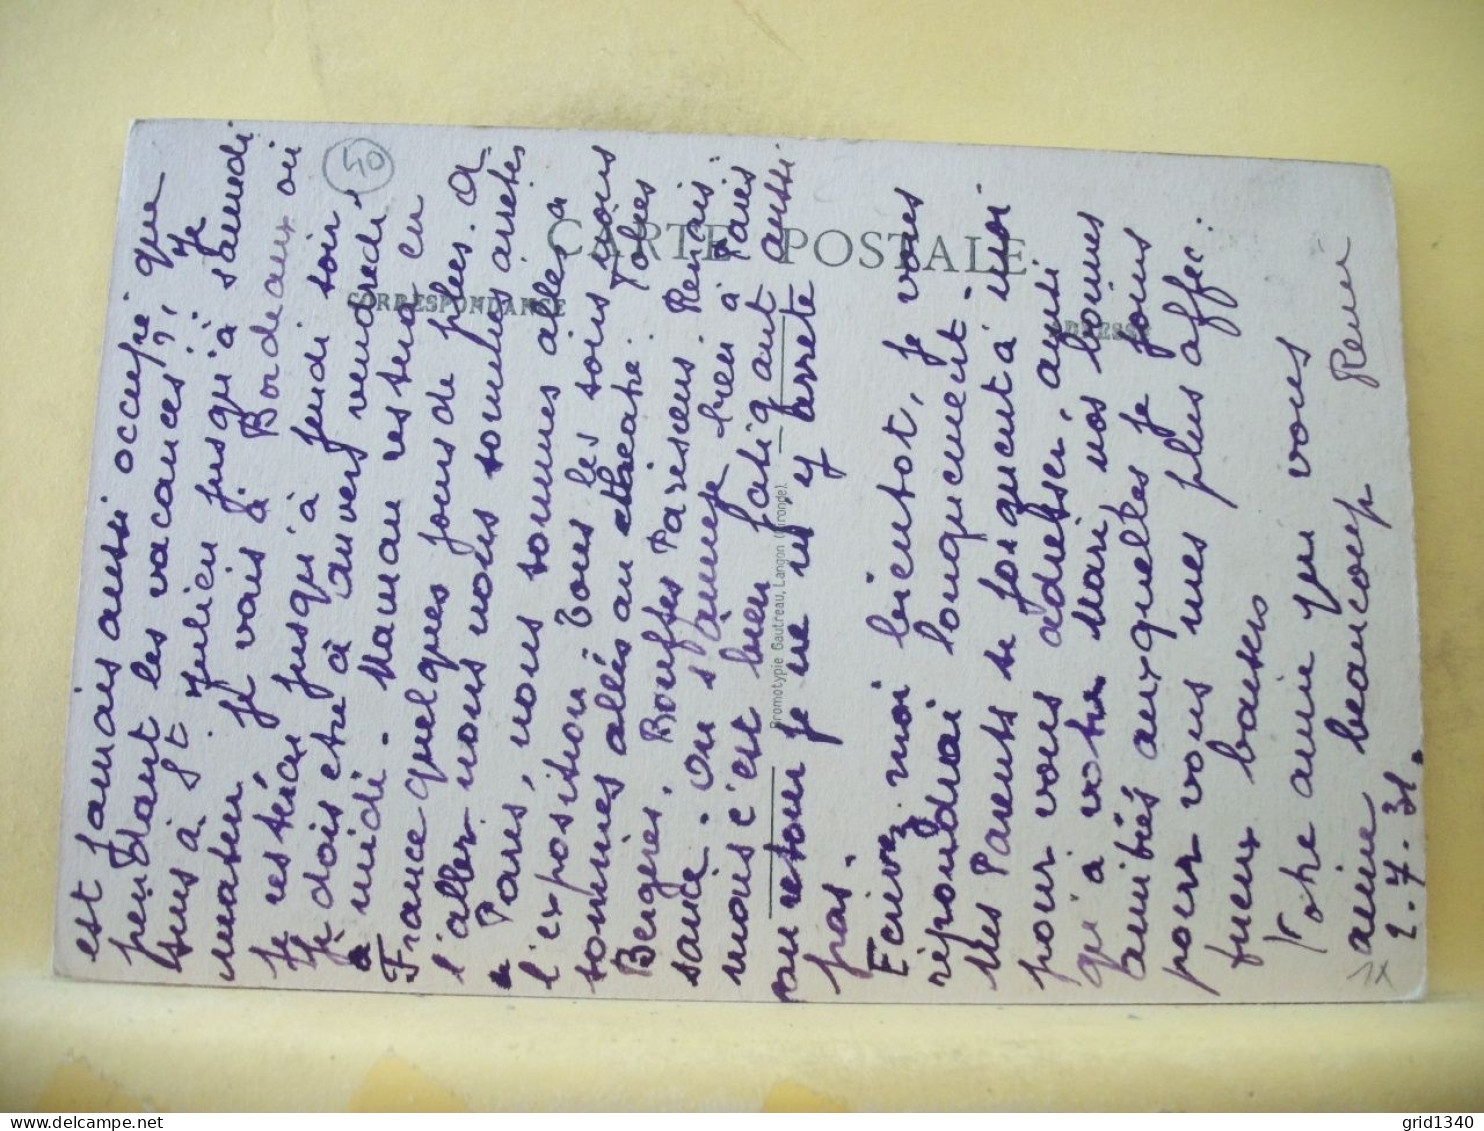 est jamais aussi occupé que
pendant les vacances?! Je
suis à St Julien jusqu'à samedi
matin je vais à Bordeaux où
je resterai jusqu'à jeudi soir
je dois être à Anvers vendredi
à midi. Maman restera en
France quelques jours de plus. A
l'aller nous nous sommes arrêtés
à Paris, nous sommes allés à
l'exposition tous les soirs nous
sommes allés au théâtre: Folies
Bergères, Bouffes Parisiens. Renais
sance. On s'amuse bien à Paris
mais c'est bien fatigant aussi
au retour je ne m'y arrête
pas.
Ecrivez moi bientot, je vous
répondrai longuement.
Mes Parents se joignent à moi
pour vous adresser, ainsi
qu'à votre Mari, nos bonnes
amitiés auxquelles je joins
pour vous mes plus affec.
tueux baisers
Votre amie qui vous
aime beaucoup Reni
2.7.31.
40
CARTE POSTALE
CORRESPONDANCE
ADRESSE
Promotypie Gautreau, Langon (Gironde).
1X
grid1340